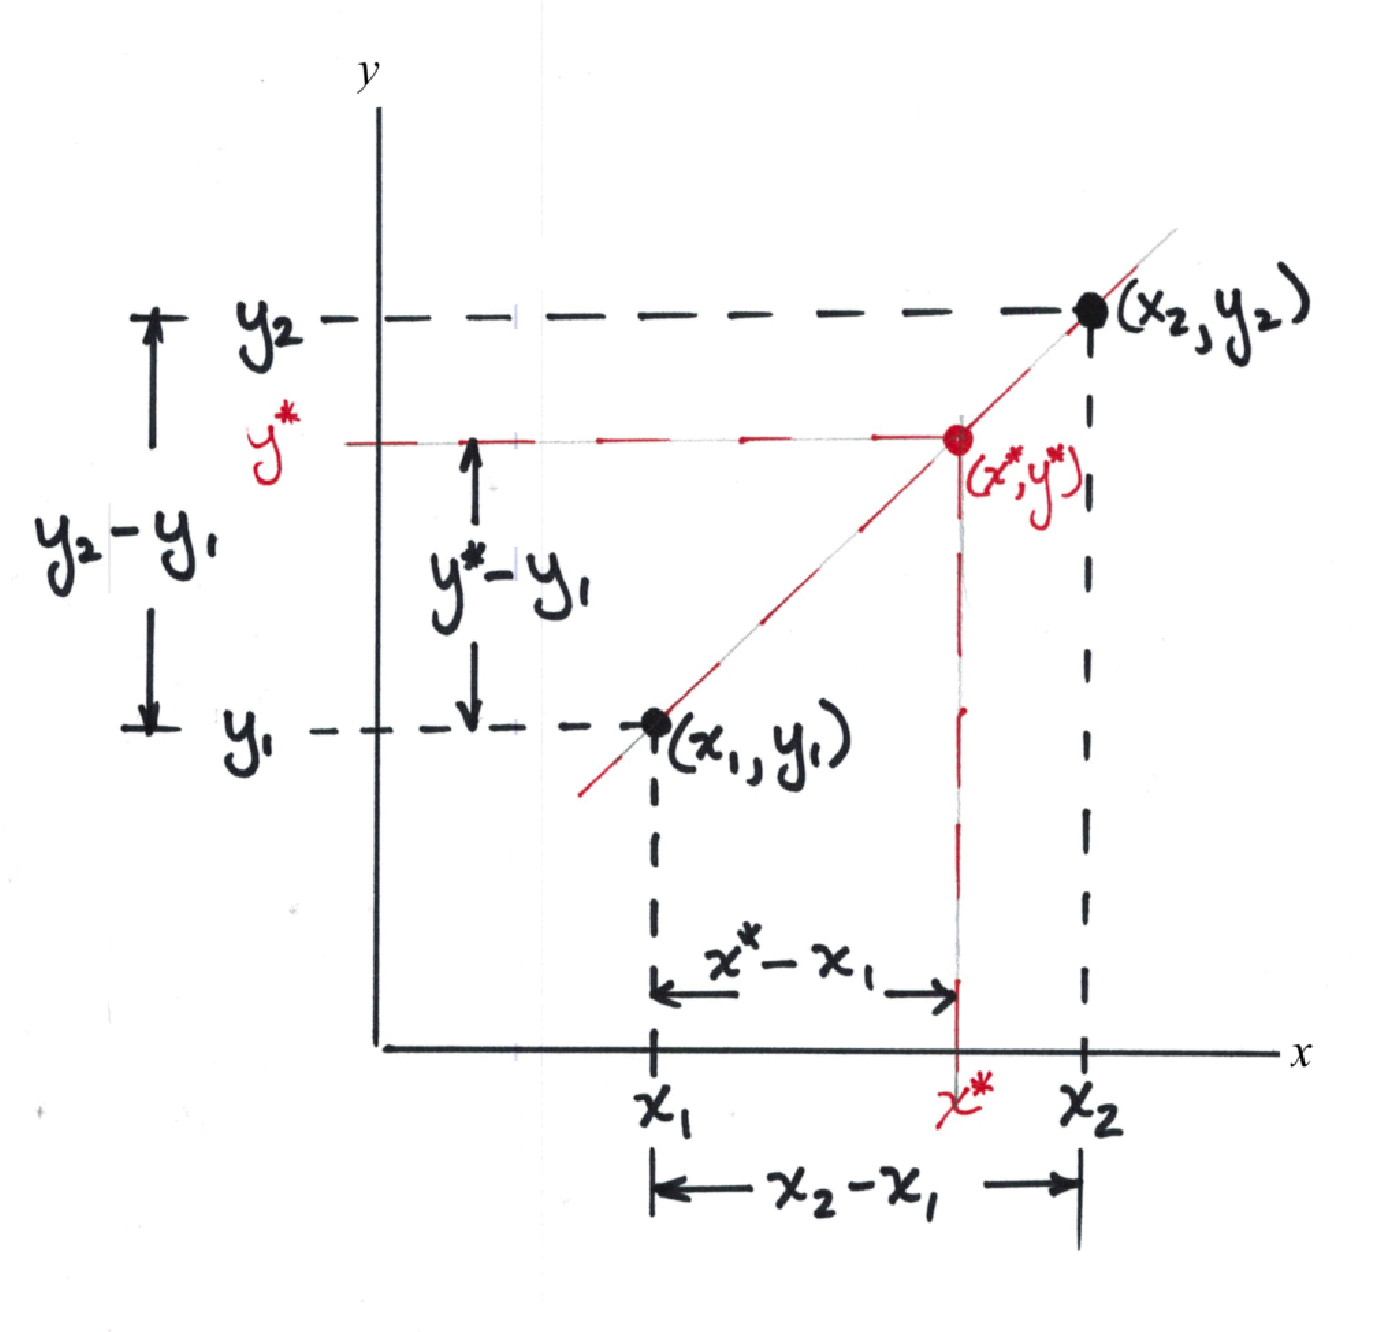 y
y₂
(x₂, y₂)
y*
(x*, y*)
y₂ - y₁
y* - y₁
y₁
(x₁, y₁)
x* - x₁
x
x₁
x*
x₂
x₂ - x₁